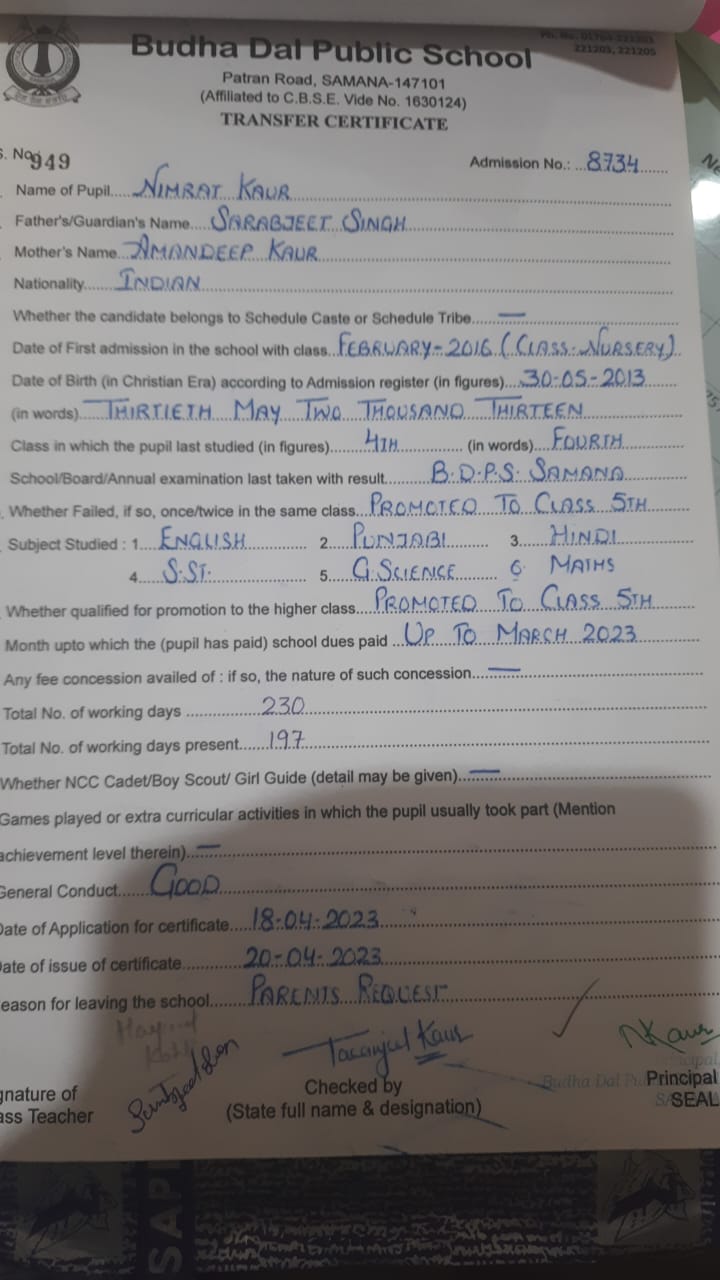 Ph. No. 01764-221203
221203, 221205
Budha Dal Public School
Patran Road, SAMANA-147101
(Affiliated to C.B.S.E. Vide No. 1630124)
TRANSFER CERTIFICATE
S. No. 949 Admission No.: ...8734
Name of Pupil.....NIMRAT KAUR
Father's/Guardian's Name....SARABJEET SINGH
Mother's Name...AMANDEEP KAUR
Nationality.......INDIAN
Whether the candidate belongs to Schedule Caste or Schedule Tribe.....—
Date of First admission in the school with class..FEBRUARY-2016 (CLASS-NURSERY)
Date of Birth (in Christian Era) according to Admission register (in figures)....30-05-2013
(in words)..THIRTIETH MAY TWO THOUSAND THIRTEEN
Class in which the pupil last studied (in figures).......4TH (in words)...FOURTH
School/Board/Annual examination last taken with result..........B.D.P.S. SAMANA
Whether Failed, if so, once/twice in the same class...PROMOTED TO CLASS 5TH
Subject Studied : 1....ENGLISH 2.....PUNJABI 3......HINDI
4.....S.ST. 5.....G.SCIENCE 6 MATHS
Whether qualified for promotion to the higher class....PROMOTED TO CLASS 5TH
Month upto which the (pupil has paid) school dues paid ...UP TO MARCH 2023
Any fee concession availed of : if so, the nature of such concession....—
Total No. of working days ...............230
Total No. of working days present......197
Whether NCC Cadet/Boy Scout/ Girl Guide (detail may be given)..—
Games played or extra curricular activities in which the pupil usually took part (Mention
achievement level therein)..—
General Conduct......GOOD
Date of Application for certificate....18-04-2023
Date of issue of certificate............20-04-2023
eason for leaving the school.......PARENTS REQUEST
Kaur
gnature of Checked by Principal
ass Teacher (State full name & designation) SEAL
SAP